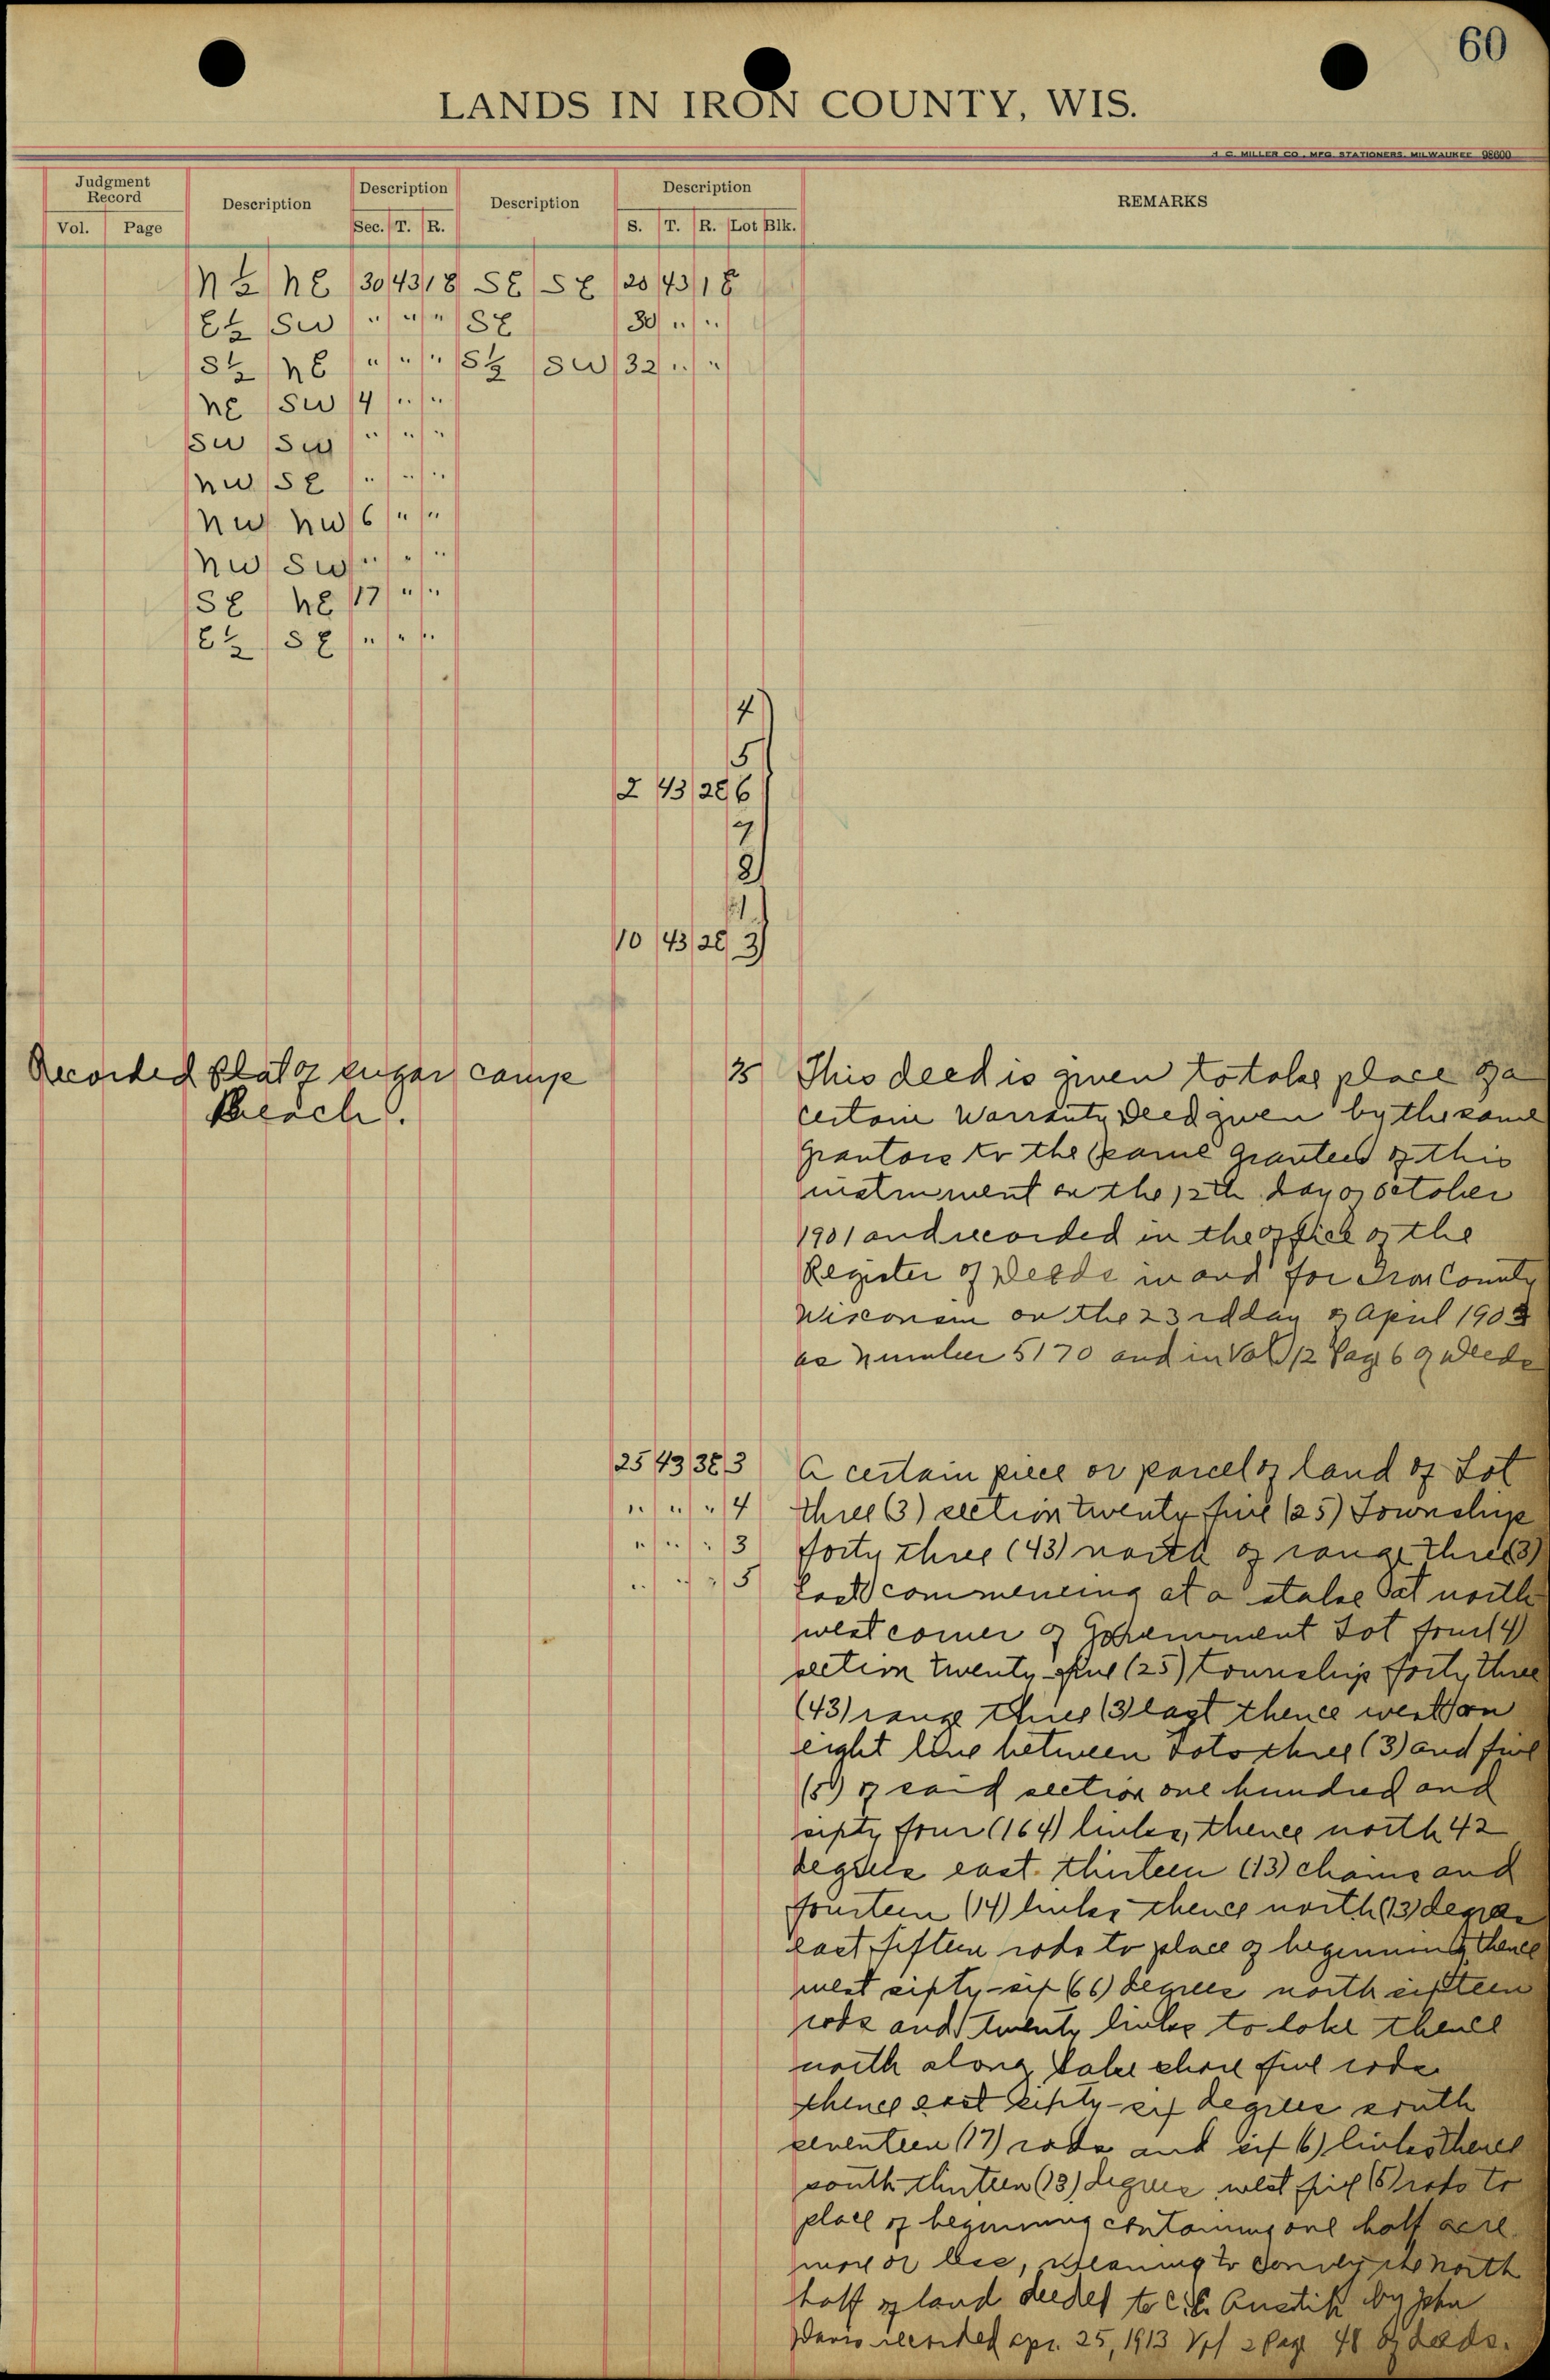 60
LANDS IN IRON COUNTY, WIS.
H. C. MILLER CO., MFG. STATIONERS, MILWAUKEE 98600
Judgment Record
Vol. Page
Description
Description
Sec. T. R.
Description
Description
S. T. R. Lot Blk.
REMARKS
N½ NE 30 43 1E SE SE 20 43 1E
E½ SW " " " SE 30 " "
S½ NE " " " S½ SW 32 " "
NE SW 4 " "
SW SW " " "
NW SE " " "
NW NW 6 " "
NW SW " " "
SE NE 17 " "
E½ SE " " "
4
5
2 43 2E 6
7
8
1
10 43 2E 3
Recorded Plat of Sugar Camp
Beach.
35 This deed is given to take place of a
certain Warranty Deed given by the same
Grantors to the same Grantees of this
instrument on the 12th day of October
1901 and recorded in the office of the
Register of Deeds in and for Iron County
Wisconsin on the 23rd day of April 1903
as number 5170 and in Vol 12 Page 6 of Deeds
25 43 3E 3 A certain piece or parcel of land of Lot
" " " 4 three (3) section twenty five (25) Township
" " " 3 forty three (43) north of range three (3)
" " " 5 East commencing at a stake at north
west corner of Government Lot four (4)
section twenty-five (25) township forty three
(43) range three (3) east thence west on
eight line between Lots three (3) and five
(5) of said section one hundred and
sixty four (164) links, thence north 42
degrees east thirteen (13) chains and
fourteen (14) links thence north (13) degrees
east fifteen rods to place of beginning, thence
west sixty-six (66) degrees north sixteen
rods and twenty links to lake thence
north along lake shore five rods
thence east sixty-six degrees south
seventeen (17) rods and six (6) links thence
south thirteen (13) degrees west five (5) rods to
place of beginning containing one half acre
more or less, meaning to convey the north
half of land deeded to Austik by John
Davis recorded Apr. 25, 1913 Vol 2 Page 48 of deeds.